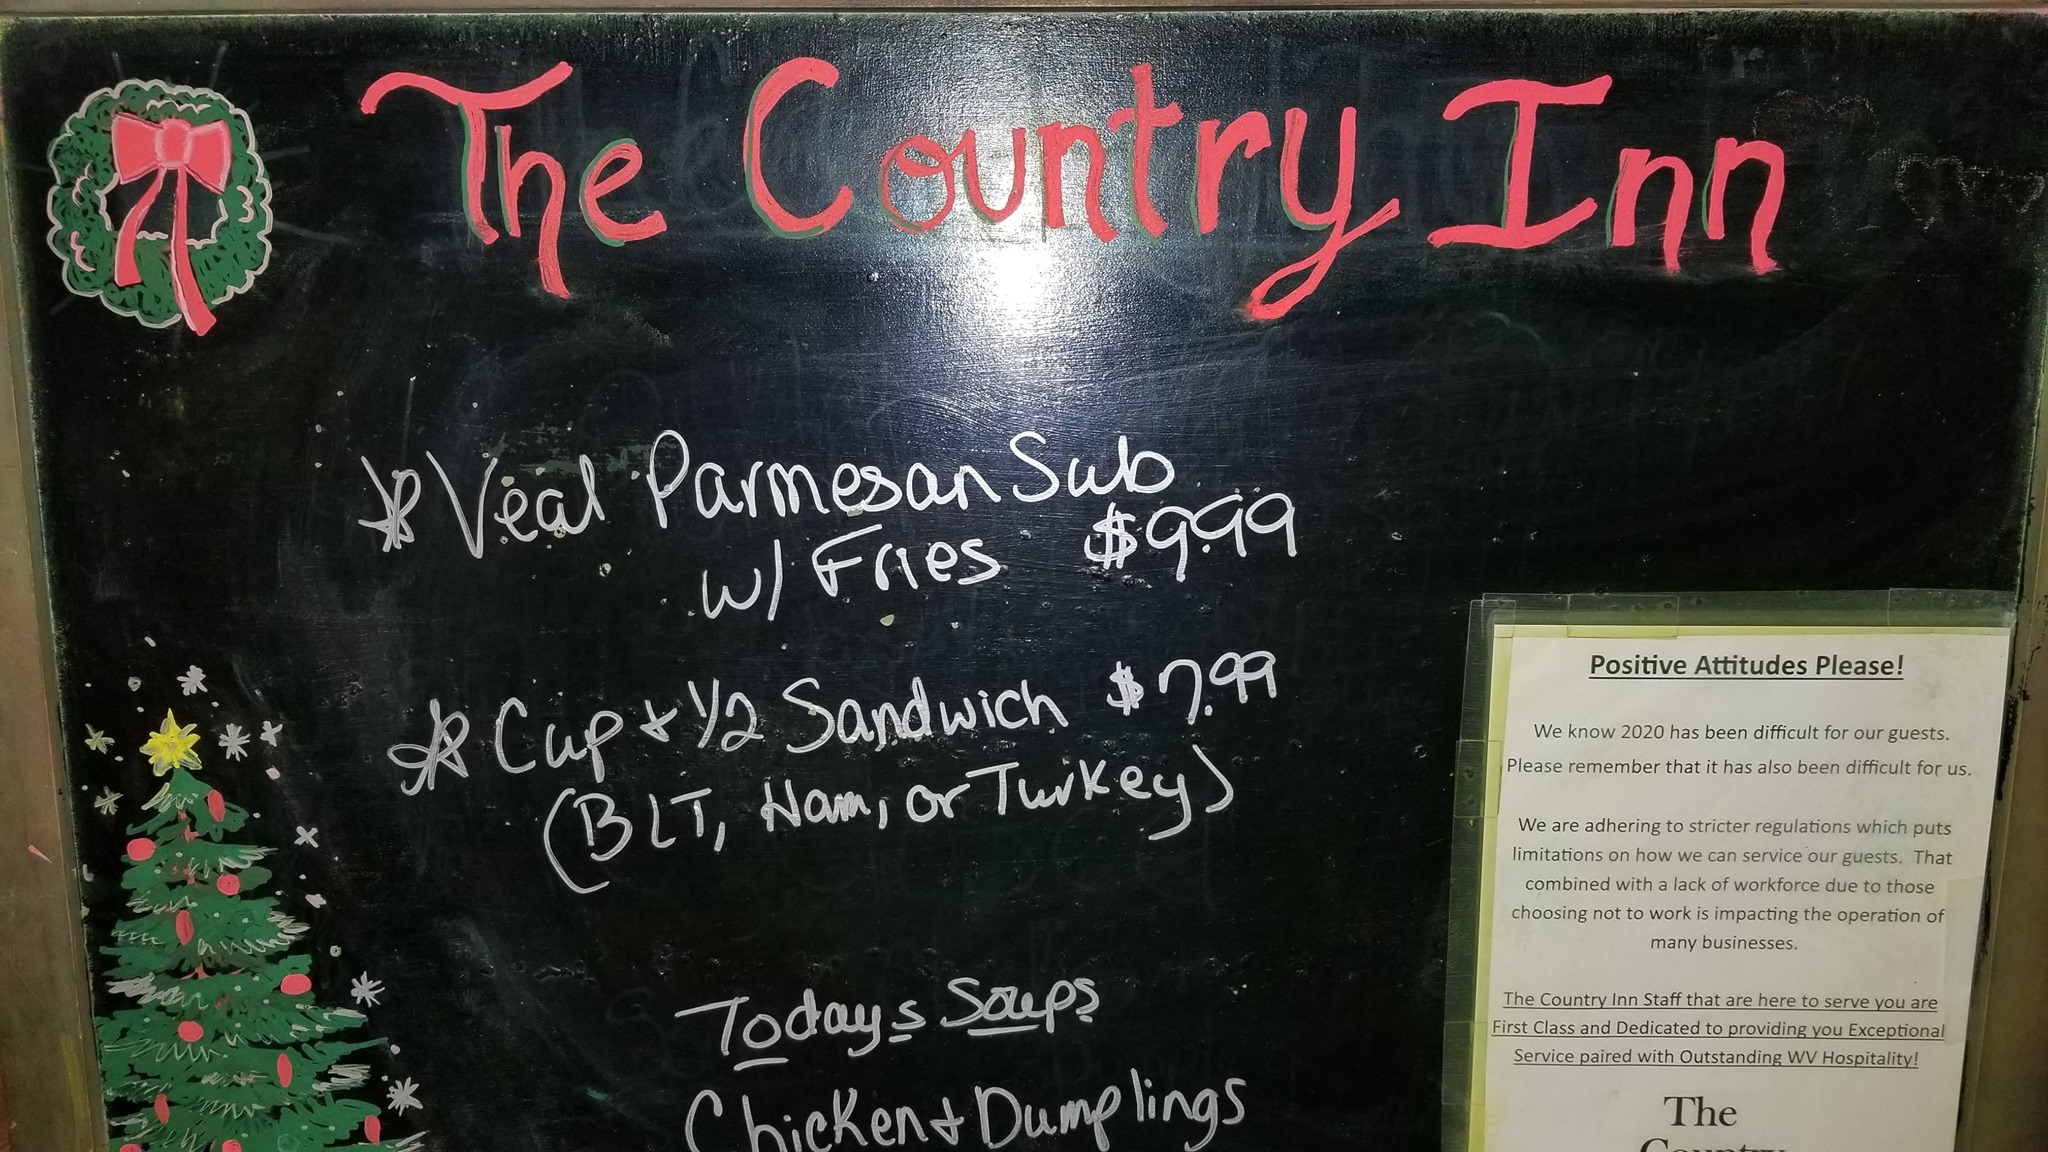 The Country Inn
* Veal Parmesan Sub
w/ Fries $9.99
* Cup + 1/2 Sandwich $7.99
(BLT, Ham, or Turkey)
Todays Soups
Chicken + Dumplings
Positive Attitudes Please!
We know 2020 has been difficult for our guests.
Please remember that it has also been difficult for us.
We are adhering to stricter regulations which puts
limitations on how we can service our guests. That
combined with a lack of workforce due to those
choosing not to work is impacting the operation of
many businesses.
The Country Inn Staff that are here to serve you are
First Class and Dedicated to providing you Exceptional
Service paired with Outstanding WV Hospitality!
The
Country